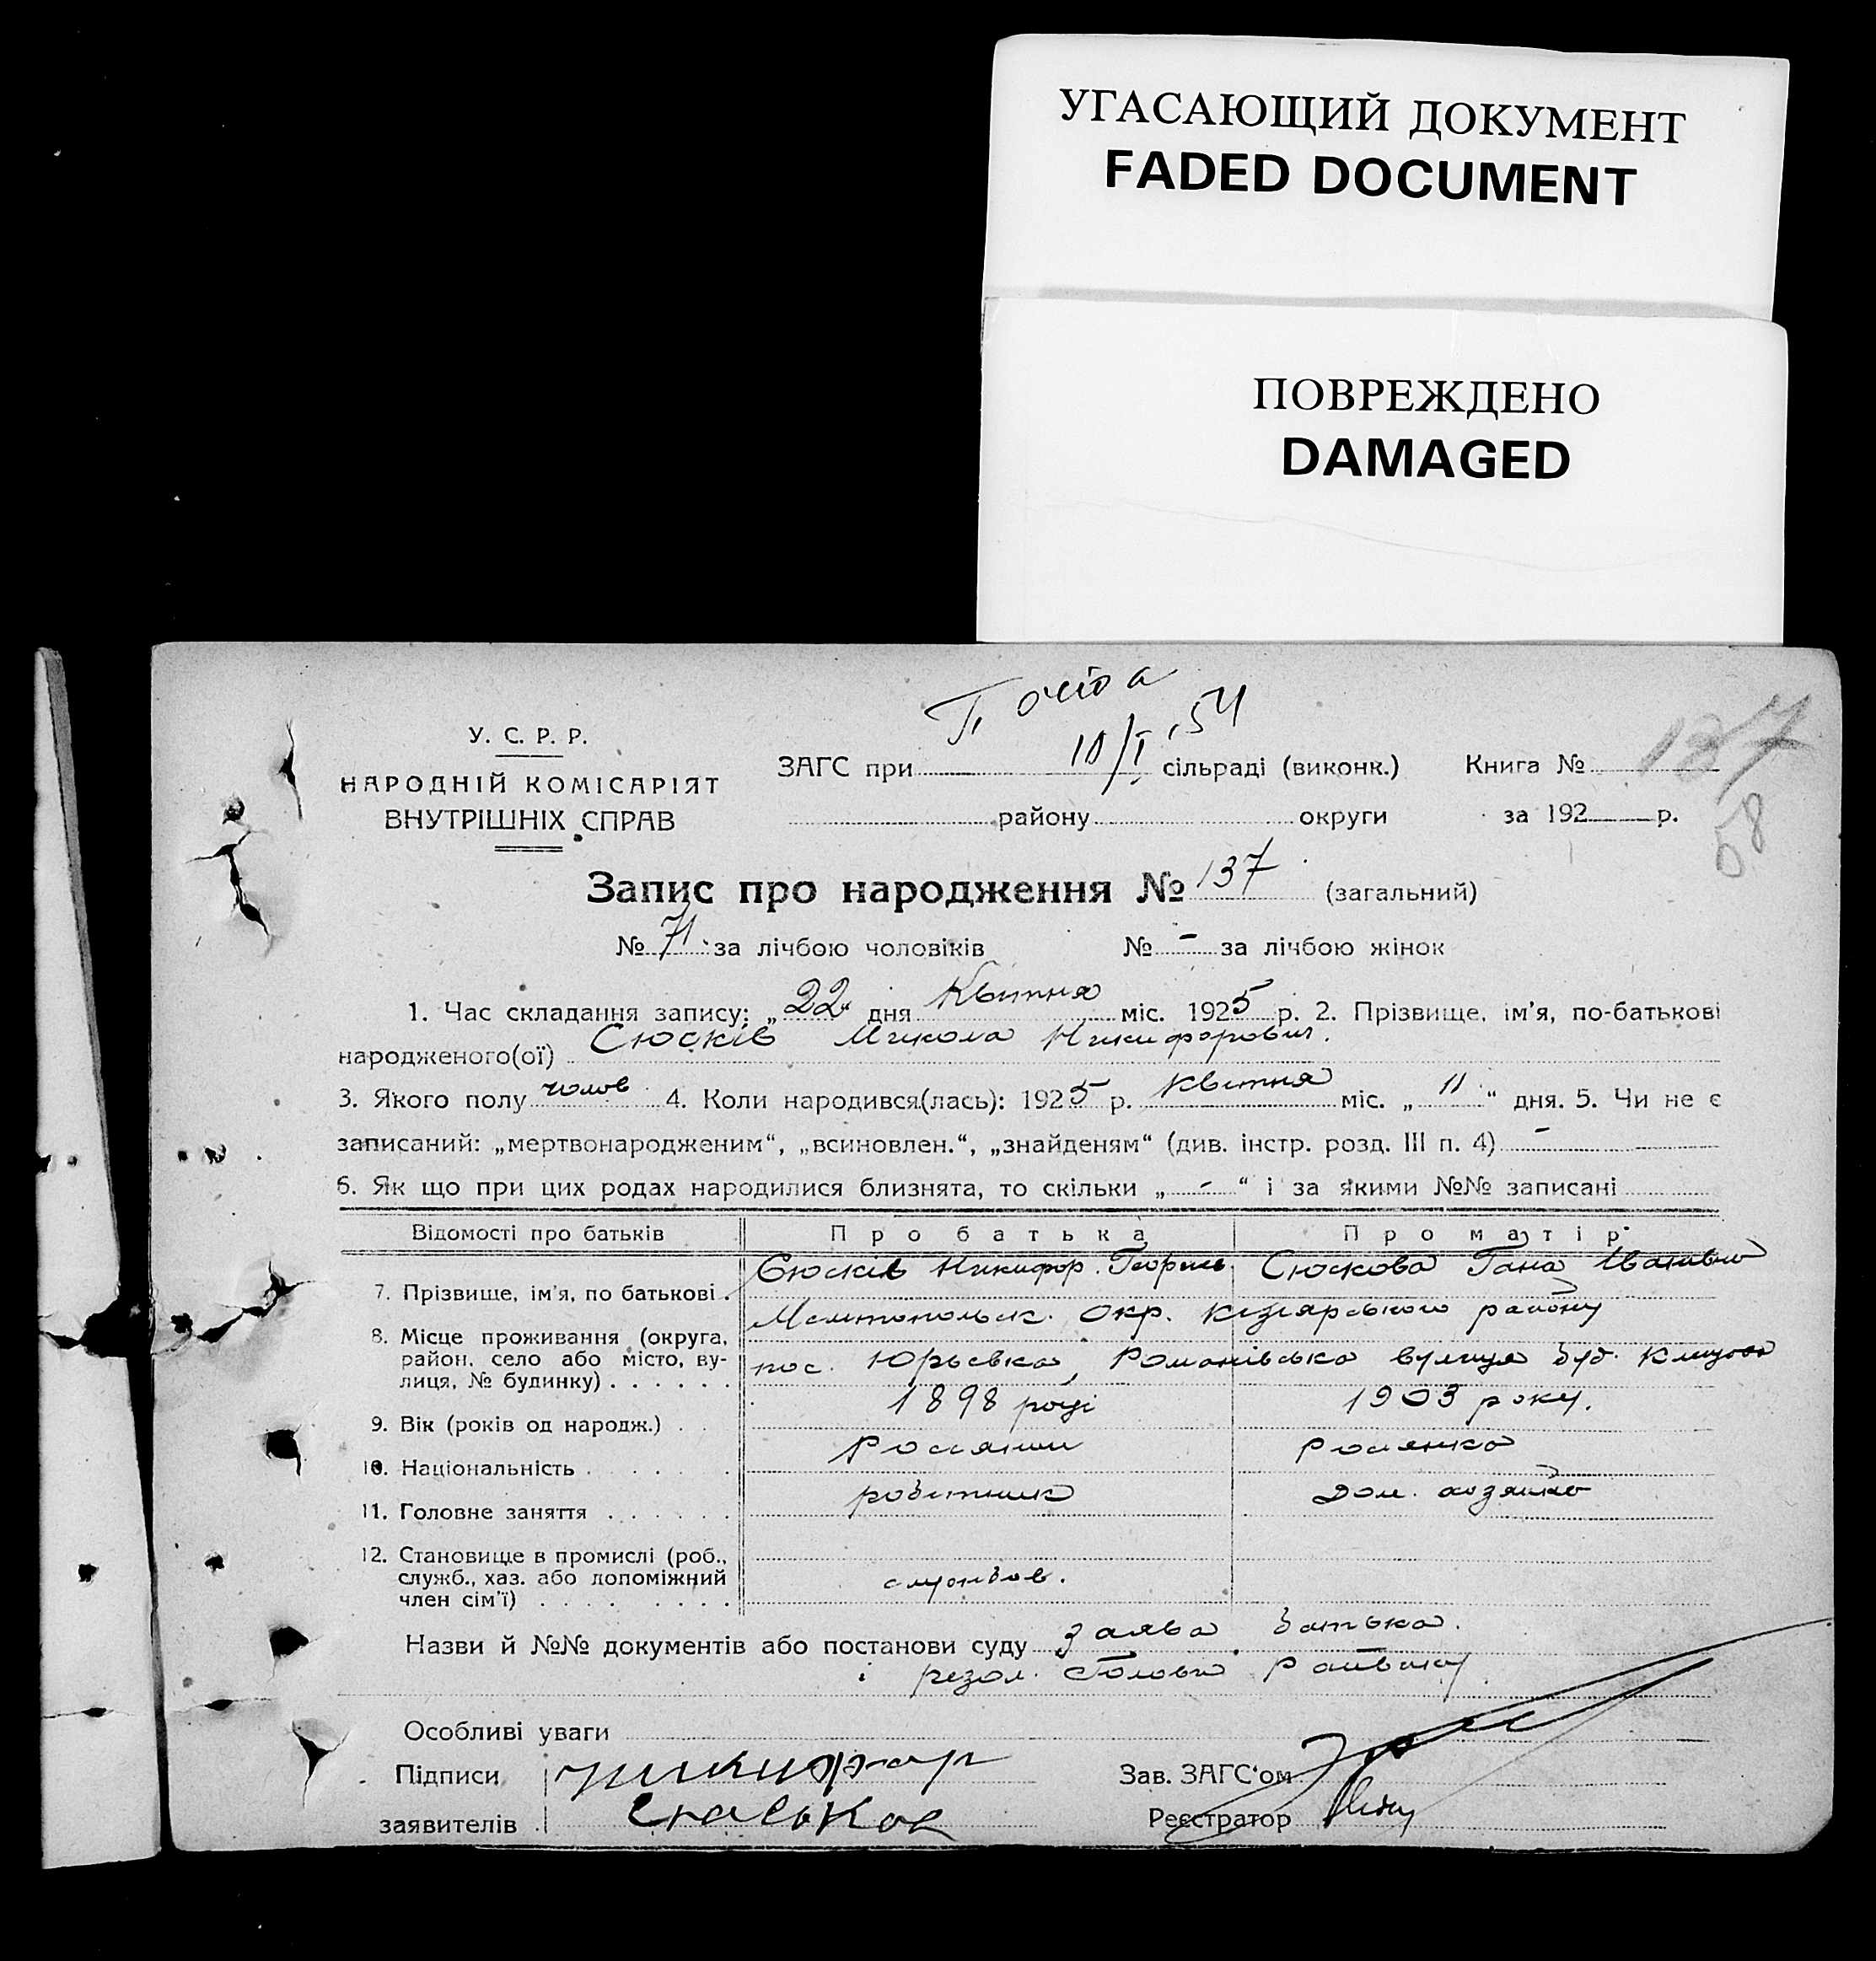 УГАСАЮЩИЙ ДОКУМЕНТ
FADED DOCUMENT
ПОВРЕЖДЕНО
DAMAGED
10/I 54
У. С. Р. Р.
НАРОДНІЙ КОМІСАРІЯТ
ВНУТРІШНІХ СПРАВ
ЗАГС при сільраді (виконк.) Книга № 137
району округи за 192 р.
58
Запис про народження № 137 (загальний)
№ 71 за лічбою чоловіків № - за лічбою жінок
1. Час складання запису: „22" дня Квітня міс. 1925 р. 2. Прізвище, ім'я, по-батькові
народженого(ої) Сюсків Микола Никифорович.
3. Якого полу чолов 4. Коли народився(лась): 1925 р. Квітня міс. „11" дня. 5. Чи не є
записаний: „мертвонародженим", „всиновлен.", „знайденям" (див. інстр. розд. III п. 4) -
6. Як що при цих родах народилися близнята, то скільки „-" і за якими №№ записані
Відомості про батьків Про батька Про матір
7. Прізвище, ім'я, по батькові . Сюсків Никифор Георгів. Сюскова Гана Іванівна
8. Місце проживання (округа, район, село або місто, вулиця, № будинку) . . . . . . Мелітопольск. Окр. Кізіярського району
пос. Юрьевка, Романівська вулиця буд.
9. Вік (років од народж.) . . 1898 році 1903 року.
10. Національність . . . . . . Россиянин росіянка
11. Головне заняття . . . . . . робітник дом. хозяйка
12. Становище в промислі (роб.,
служб., хаз. або допоміжний
член сім'ї) . . . . . . . . . службов.
Назви й №№ документів або постанови суду Заява батька.
і резол. Голови Райвику
Особливі уваги
Підписи Никифор Зав. ЗАГС'ом
заявителів Сюськов Реєстратор